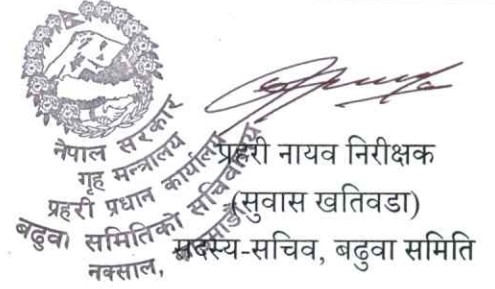 नेपाल सरकार
गृह मन्त्रालय
प्रहरी प्रधान कार्यालय
बढुवा समितिको सचिवालय
नक्साल, काठमाडौं
प्रहरी नायव निरीक्षक
(सुवास खतिवडा)
सदस्य-सचिव, बढुवा समिति